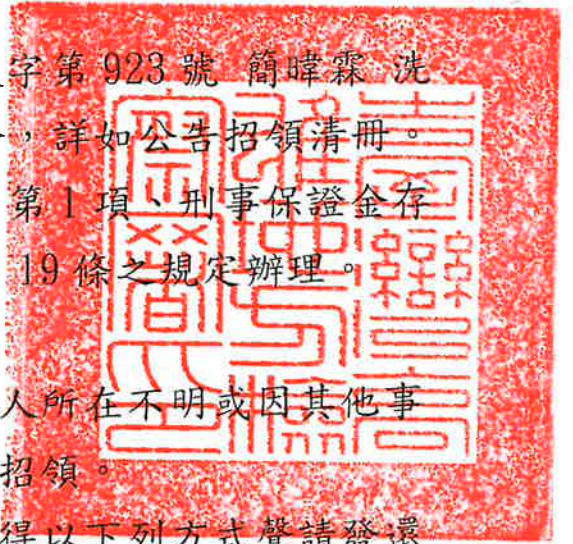 字第 923 號 簡暐霖 洗
，詳如公告招領清冊。
第 1 項、刑事保證金存
19 條之規定辦理。
人所在不明或因其他事
招領。
得以下列方式聲請發還
臺灣高
雄地方檢
察署印